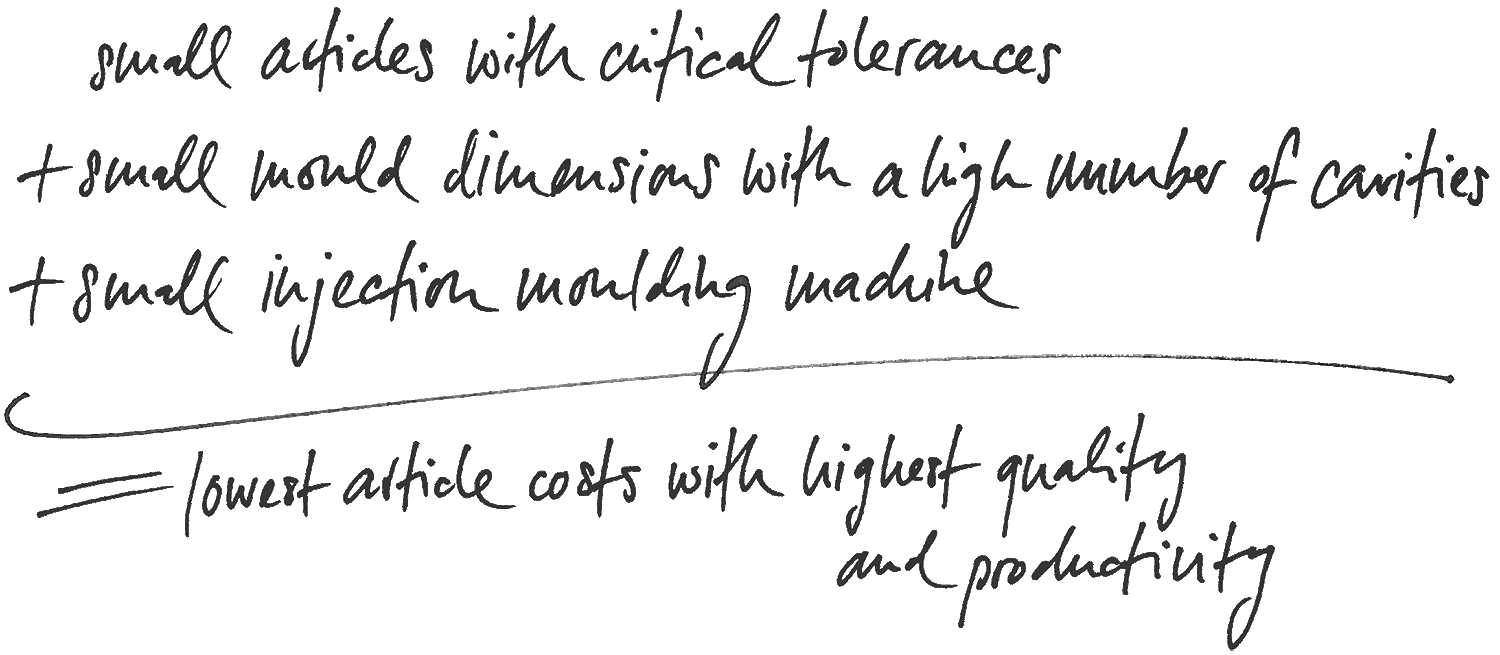 small articles with critical tolerances
+ small mould dimensions with a high number of cavities
+ small injection moulding machine
= lowest article costs with highest quality
and productivity